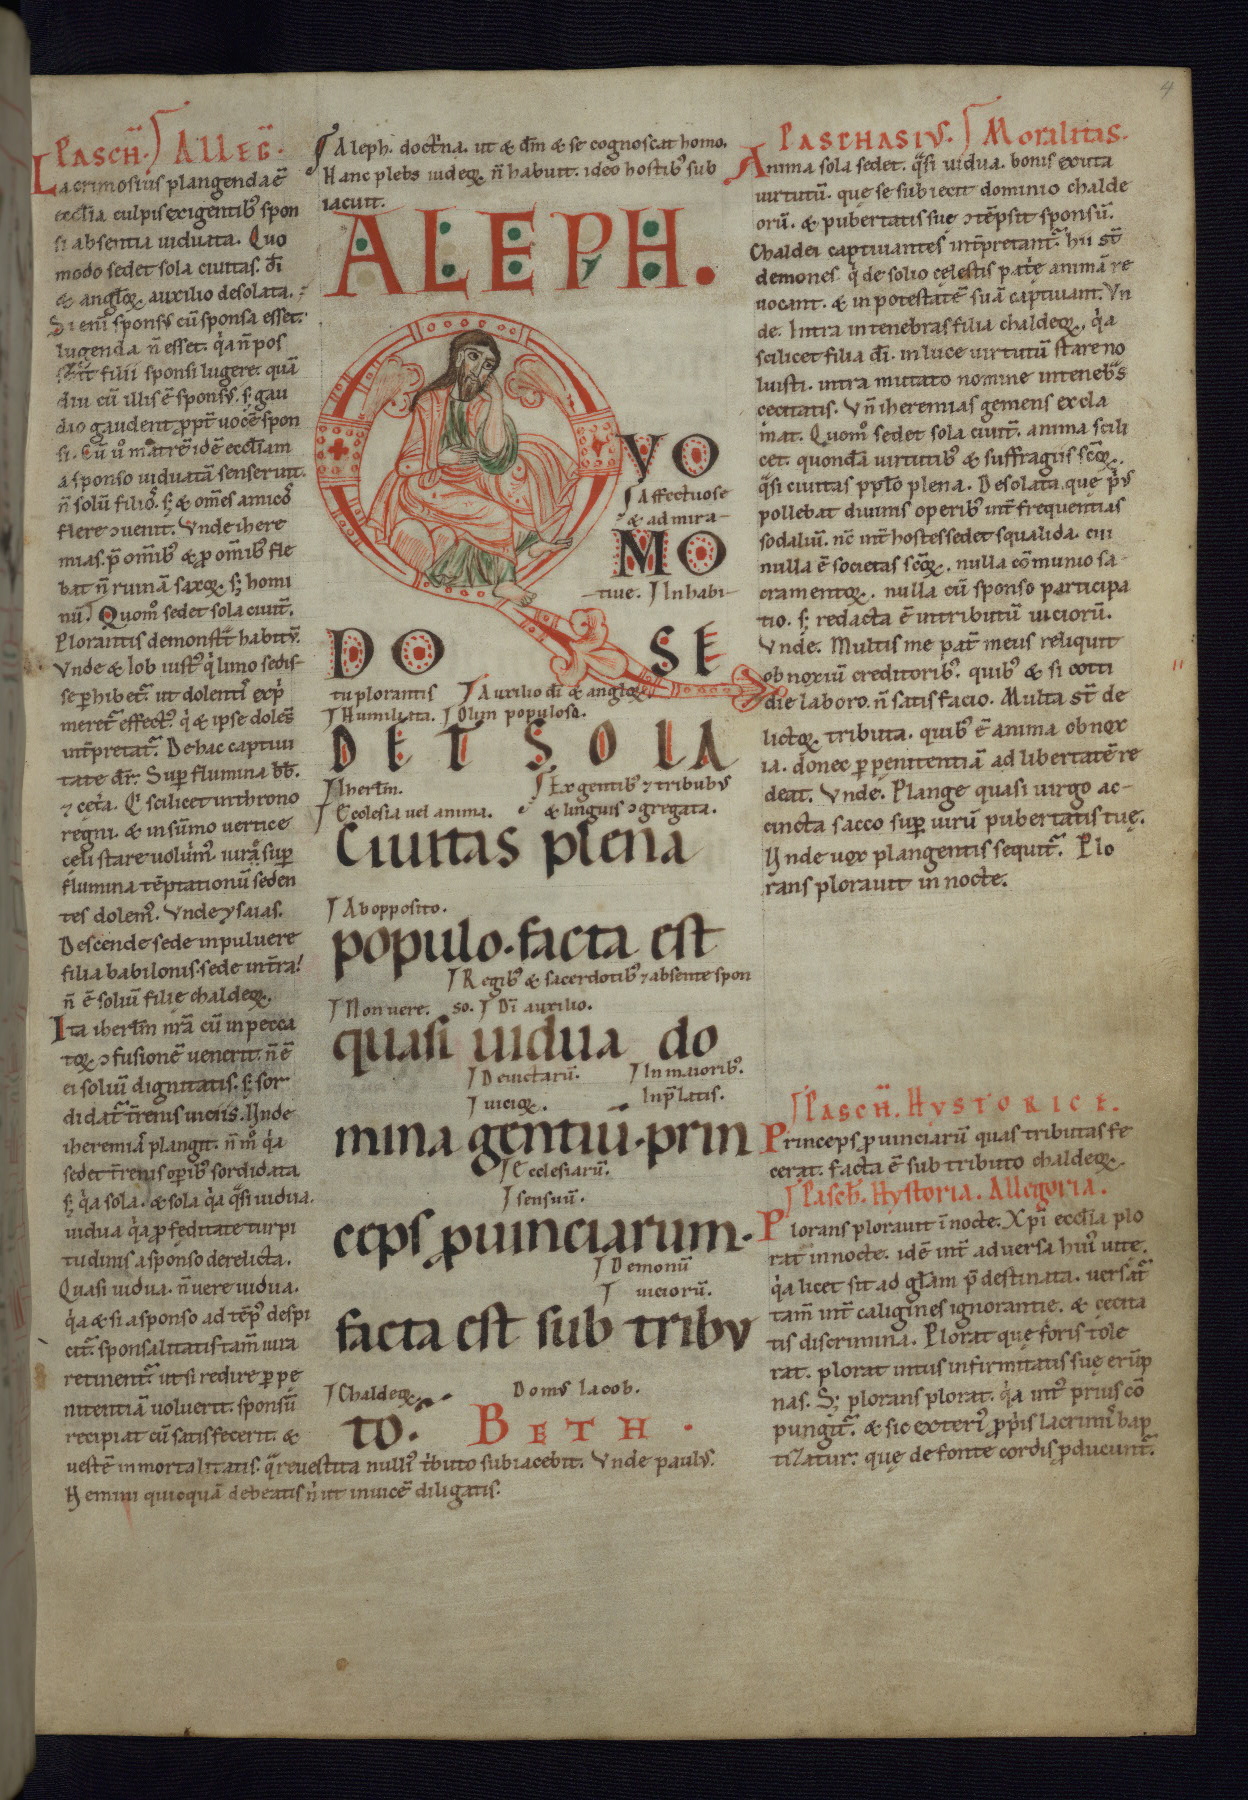 4
PASCH̄. ALLEḠ.
Lacrimosius plangenda ē
eccl̄ia culpis exigentib; spon
si absentia uiduata. Quo
modo sedet sola ciuitas. d̄i
& angloꝝ auxilio desolata.
Si enī sponsus cū sponsa esset.
lugenda n̄ esset. q̇a n̄ pos
sūt filii sponsi lugere. quā
diu cū illis ē sponsus. s; gau
dio gaudent ꝓpt̄ uocē spon
si. Cū u̇ matrē idē eccl̄iam
a sponso uiduatā senserint.
n̄ solū filios. s; & om̄es amicos
flere ↄuenit. Vnde ihere
mias. p̄ om̄ib; & ꝓ om̄ib; fle
bat n̄ ruinā saxoꝝ. s; homi
nū. Quom̊ sedet sola ciuit̄.
Plorantis demonstr̄t habitū.
Vnde & Iob iustus q̇ in imo sedis
se ꝑhibet᷑. ut dolentis exp̄
meret᷑ effectus. q̇ & ipse dolens
int̄pretat᷑. De hac captiui
tate dr̄. Sup̄ flumina bb̄.
⁊ cet̄a. Q̇ scilicet in throno
regni. & in sūmo uertice
celi stare uoluim;. iuxta sup̄
flumina tēptationū seden
tes dolem;. Vnde ysaias.
Descende sede in puluere
filia babilonis. sede in t̄ra.
n̄ ē soliū filie chaldeoꝝ.
Ita iherl̄m nr̄a cū in pecca
toꝝ ↄfusionē uenerit. n̄ ē
ei soliū dignitatis. s; sor
didat᷑ t̄renis uiciis. Vnde
iheremias plangit. n̄ m̊ q̇a
sedet t̄renis oꝑib; sordidata
s; q̇a sola. & sola q̇a q̄si uidua.
uidua q̇a ꝓ feditate turpi
tudinis a sponso derelicta.
Quasi uidua. n̄ uere uidua.
q̇a & si a sponso ad tēp; despi
cit᷑. sponsalitatis tam̄ iura
retinent᷑. ut si redire ꝑ pe
nitentiā uoluerit. sponsū
recipiat cū satisfecerit. &
uestē inmortalitatis. q̄ reuestita nulli; t̄buto subiacebit. Vnde paulus.
Nemini quicquā debeatis n̄ ut inuicē diligatis.
Aleph. doct̄na. ut & dm̄ & se cognoscat homo.
Hanc plebs iudeoꝝ n̄ habuit. ideo hostib; sub
iacuit.
ALEPH.
QVO
Affectuose
& admira
MO
tiue. Inhabi
DO SE
tu plorantis Auxilio di & angloꝝ
Humiliata. Olim populosa.
DET SOLA
Iherl̄m. Ex gentib; ⁊ tribubus
Ecclesia uel anima. & linguis ↄgregata.
Ciuitas plena
Ab opposito.
populo. facta est
Regib; & sacerdotib; ⁊ absente spon
Non uere. so. Di auxilio.
quasi uidua do
Deuictarū. In maiorib;.
uicioꝝ. In p̄latis.
mina gentiū. prin
Ecclesiarū.
sensuū.
ceps ꝓuinciarum.
Demonū
uiciorū.
facta est sub tribu
Chaldeoꝝ. Domus Iacob.
to. BETH.
PASCHASIVS. Moralitas.
Anima sola sedet. q̄si uidua. bonis exuta
uirtutū. que se subiecit dominio chalde
orū. & pubertatis sue ↄtēpsit sponsū.
Chaldei captiuantes int̄pretant᷑. hii st̄
demones. q̇ de solio celestis patrie animā re
uocant. & in potestatē suā captiuant. Vn
de. Intra in tenebras filia chaldeoꝝ. q̇a
scilicet filia di. in luce uirtutū stare no
luisti. intra mutato nomine in tenebras
cecitatis. Vn̄ iheremias gemens excla
mat. Quom̊ sedet sola ciuit̄. anima scili
cet. quondā uirtutib; & suffragiis sc̄oꝝ.
q̄si ciuitas ppl̄o plena. Desolata. que prius
pollebat diuinis operib; int̄ frequentias
sodaliū. nc̄ int̄ hostes sedet squalida. cui
nulla ē societas sc̄oꝝ. nulla cōmunio sa
cramentoꝝ. nulla cū sponso participa
tio. s; redacta ē in tributū uiciorū.
Vnde. Multis me pat̄ meus reliquit
obnoxiū creditorib;. quib; & si cotti
die laboro. n̄ satisfacio. Multa st̄ de
lictoꝝ tributa. quib; ē anima obnox
ia. donec ꝑ penitentiā ad libertatē re
deat. Vnde. Plange quasi uirgo ac
cincta sacco sup̄ uirū pubertatis tue.
Vnde uox plangentis sequit᷑. Plo
rans plorauit in nocte.
PASCH̄. HYSTORICE.
Princeps ꝓuinciarū quas tributas fe
cerat. facta ē sub tributo chaldeoꝝ.
Pasch̄. Hystoria. Allegoria.
Plorans plorauit ī nocte. Xp̄i eccl̄ia plo
rat in nocte. idē int̄ aduersa hui; uite.
q̇a licet sit ad gl̄am p̄destinata. uersat᷑
tam̄ int̄ caligines ignorantie. & cecita
tis discrimina. Plorat que foris tole
rat. plorat intus infirmitatis sue erūp
nas. S; plorans plorat. q̇a int; prius cō
pungit᷑. & sic exteri; ꝓp̄is lacrimis bap
tizatur. que de fonte cordis ꝓducunt᷑.